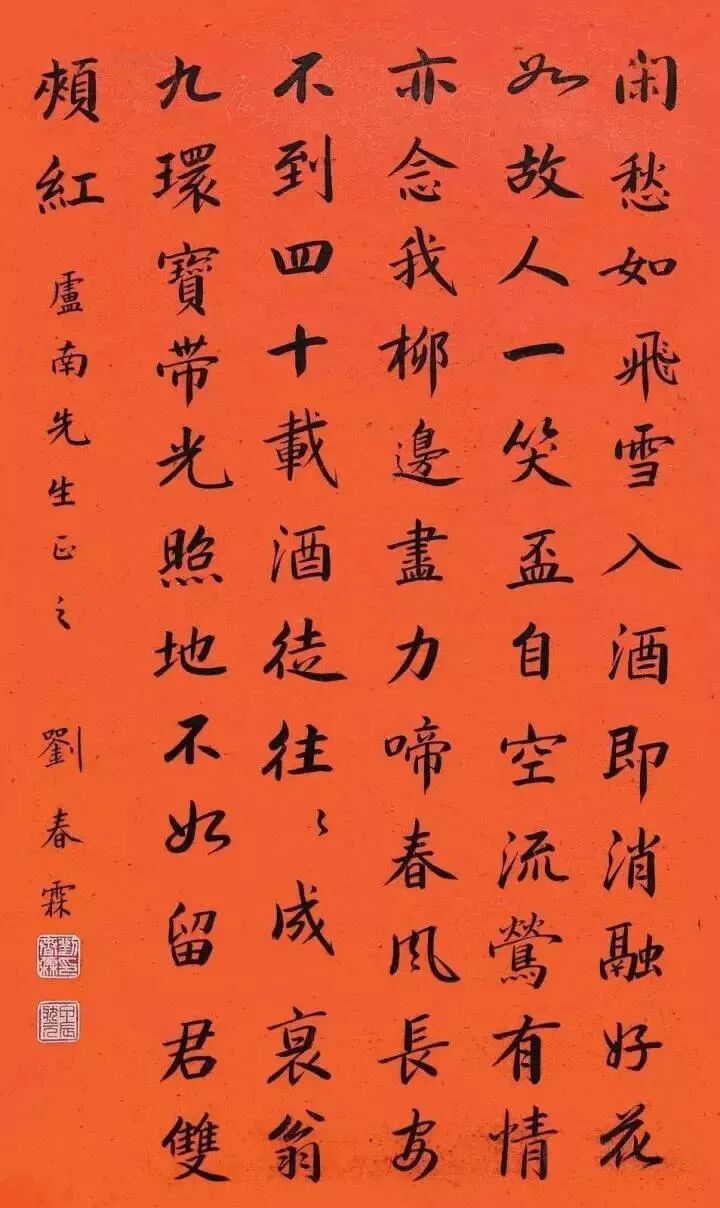 闲愁如飛雪入酒即消融好花
如故人一笑盃自空流鶯有情
亦念我柳邊盡力啼春風長安
不到四十載酒徒往〻成衰翁
九環寶带光照地不如留君雙
頰紅
盧南先生正之
劉春霖